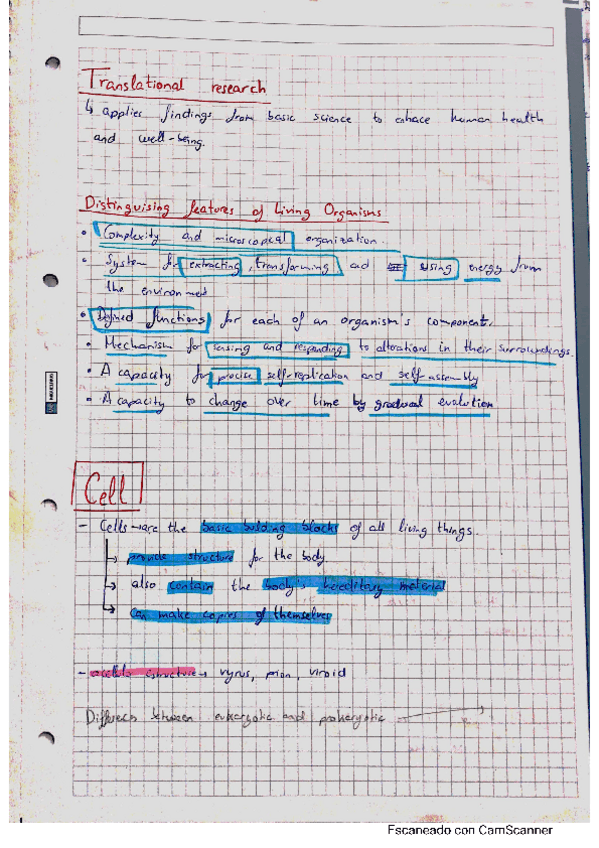 Translational research
↳ applies findings from basic science to enhace human health
and well-being.
Distinguising features of Living Organisms
• Complexity and microscopical organization
• System for extracting, transforming and using energy from
the environmed
• Defined functions for each of an organism's component.
• Mechanism for sensing and responding to alterations in their surroundings.
• A capacity for precise self-replication and self-assembly
• A capacity to change over time by gradual evolution
Cell
- Cells are the basic building blocks of all living things.
↳ provide structure for the body.
↳ also contain the body's hereditary material
↳ Can make copies of themselves
- structure → vyrus, prion, viroid
between eukaryotic and prokaryotic
Escaneado con CamScanner